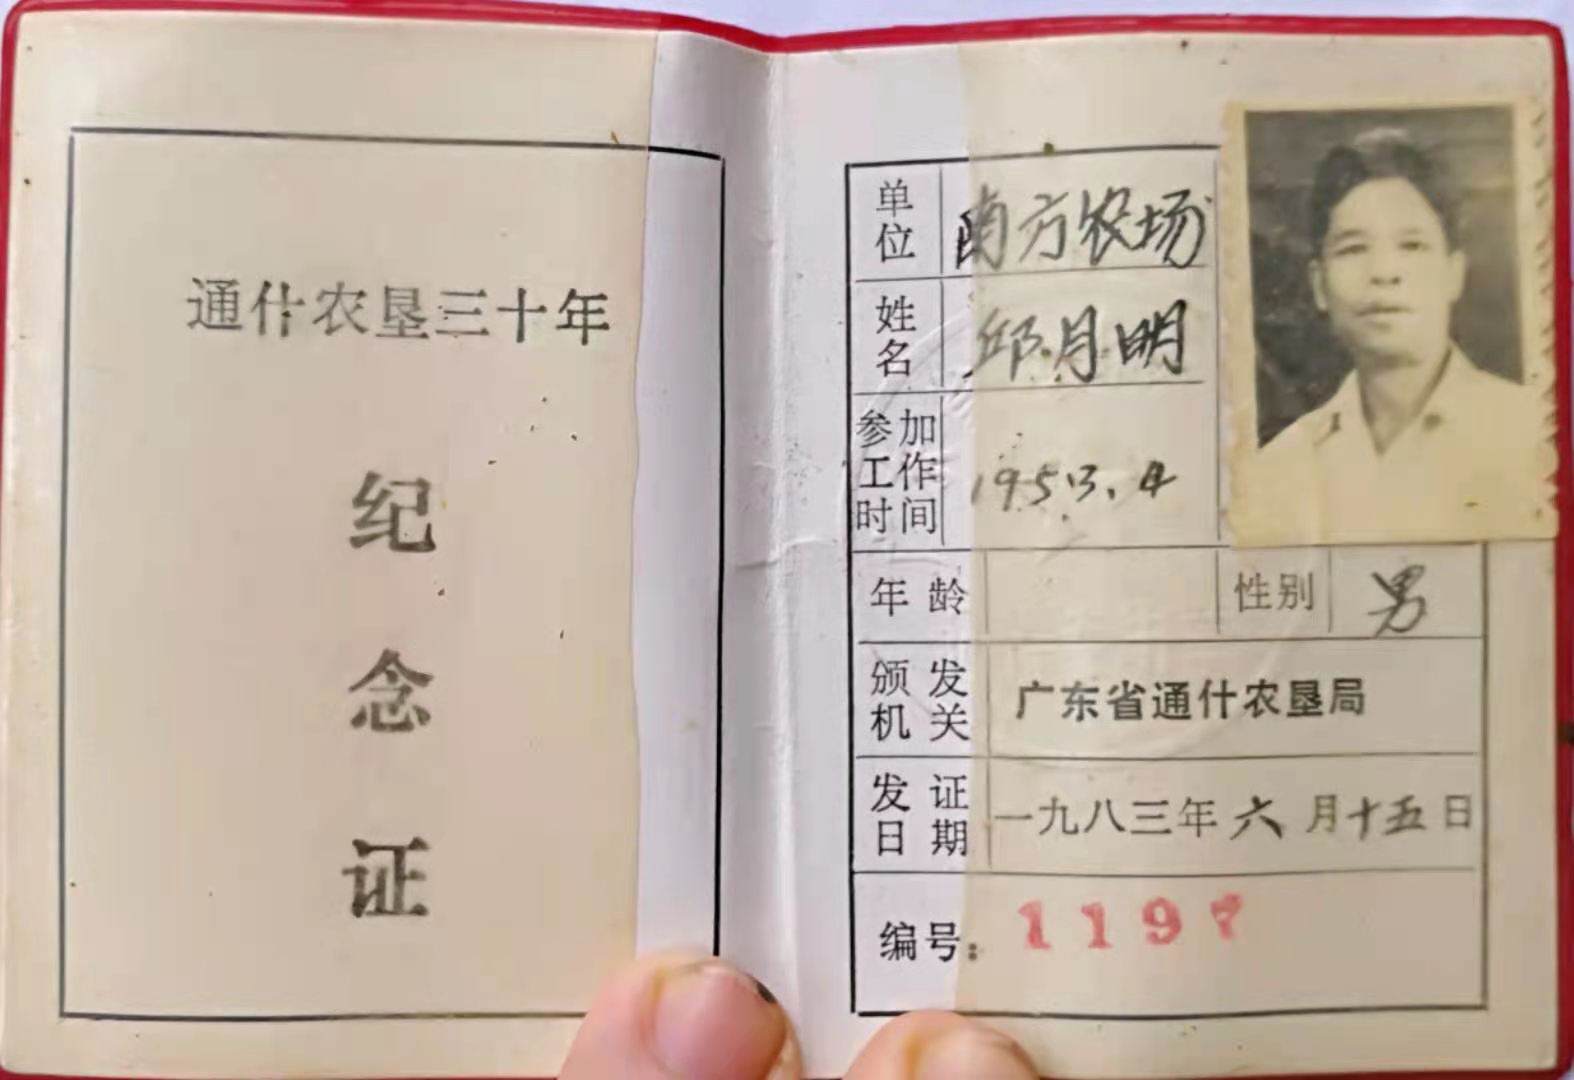 通什农垦三十年
纪
念
证
单位 南方农场
姓名 邱月明
参加工作时间 1953.4
年龄
性别 男
颁发机关 广东省通什农垦局
发证日期 一九八三年六月十五日
编号: 1197